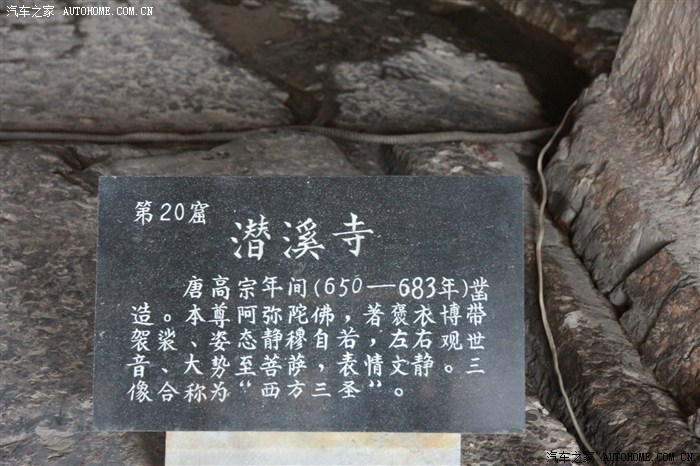 汽车之家 AUTOHOME.COM.CN
第20窟
潜溪寺
唐高宗年间(650—683年)凿
造。本尊阿弥陀佛，著褒衣博带
袈裟、姿态静穆自若，左右观世
音、大势至菩萨，表情文静。三
像合称为“西方三圣”。
汽车之家 AUTOHOME.COM.CN